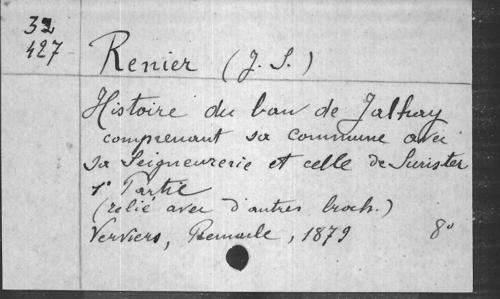 32
427
Renier (J. S.)
Histoire du ban de Jalhay
comprenant sa commune avec
sa Seigneurerie et celle de Surister
1e Partie
(relié avec d'autres broch.)
Verviers, Remacle, 1879 8o